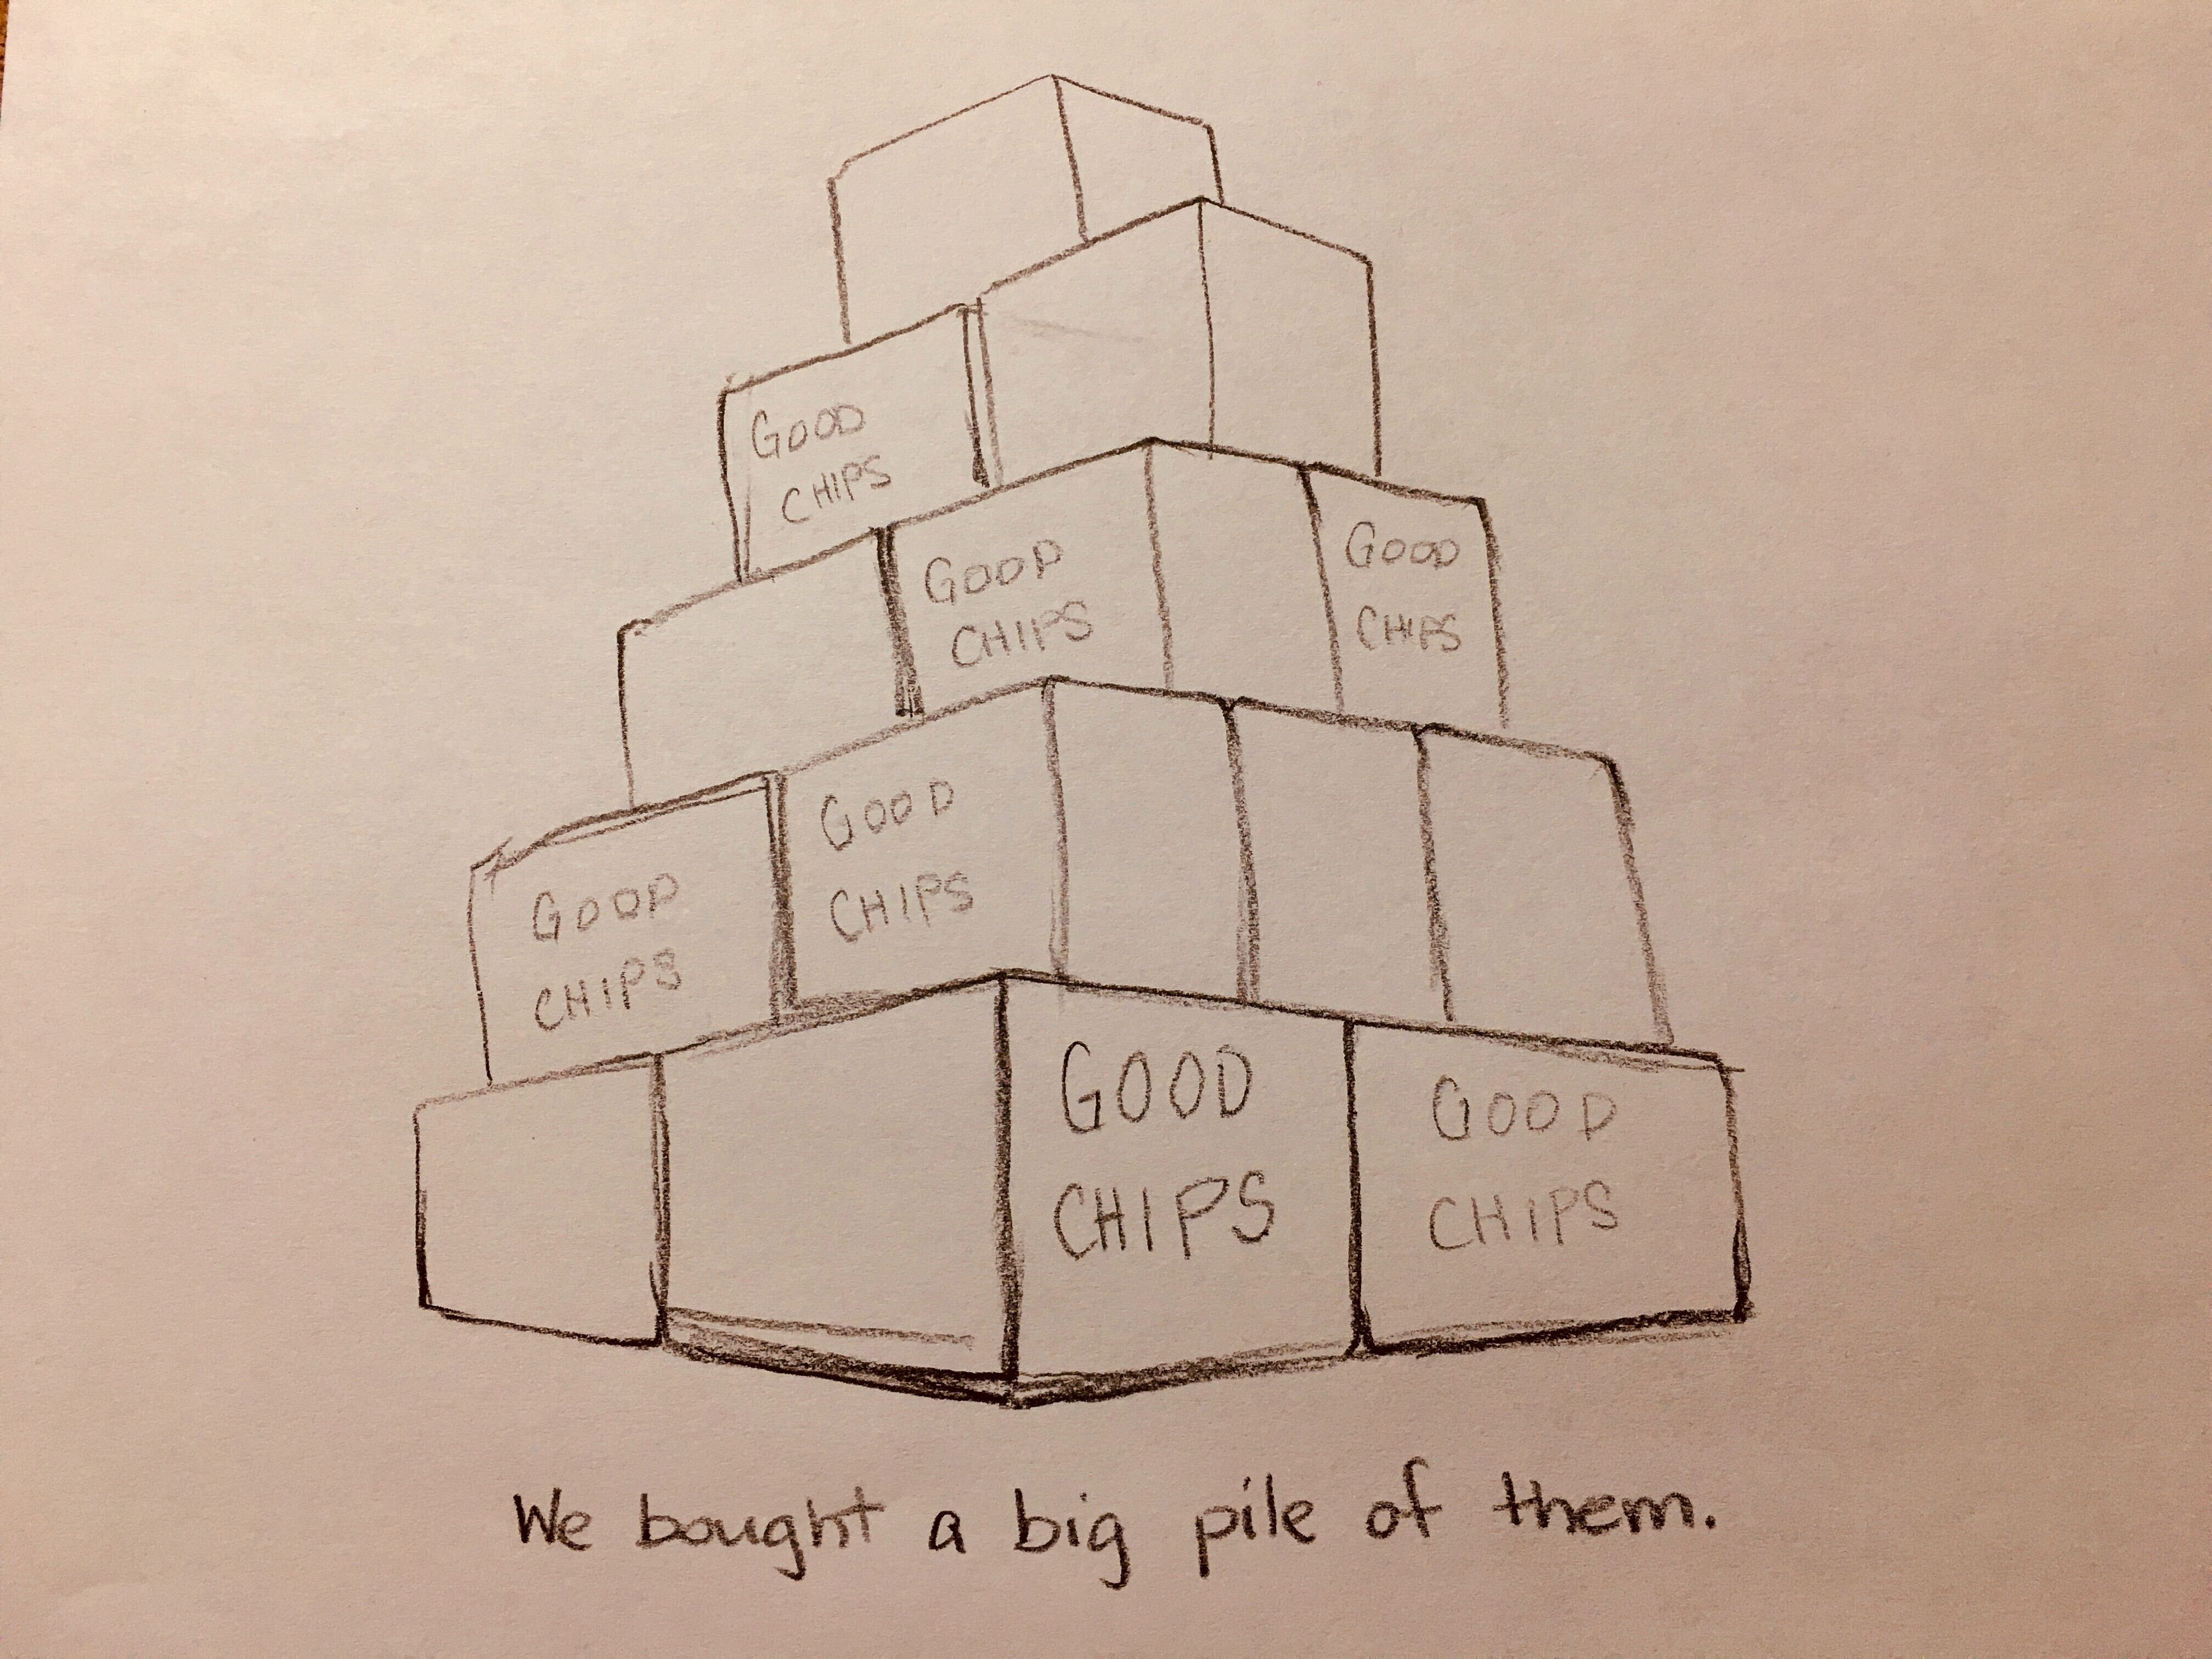 GOOD
CHIPS
GOOD
CHIPS
GOOD
CHIPS
GOOD
CHIPS
GOOD
CHIPS
GOOD
CHIPS
GOOD
CHIPS
We bought a big pile of them.